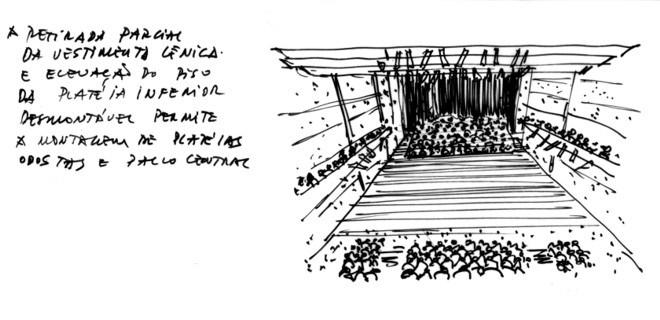 A RETIRADA PARCIAL
DA VESTIMENTA CÊNICA
E ELEVAÇÃO DO PISO
DA PLATÉIA INFERIOR
DESMONTÁVEL PERMITE
A MONTAGEM DE PLATÉIAS
OPOSTAS E PALCO CENTRAL